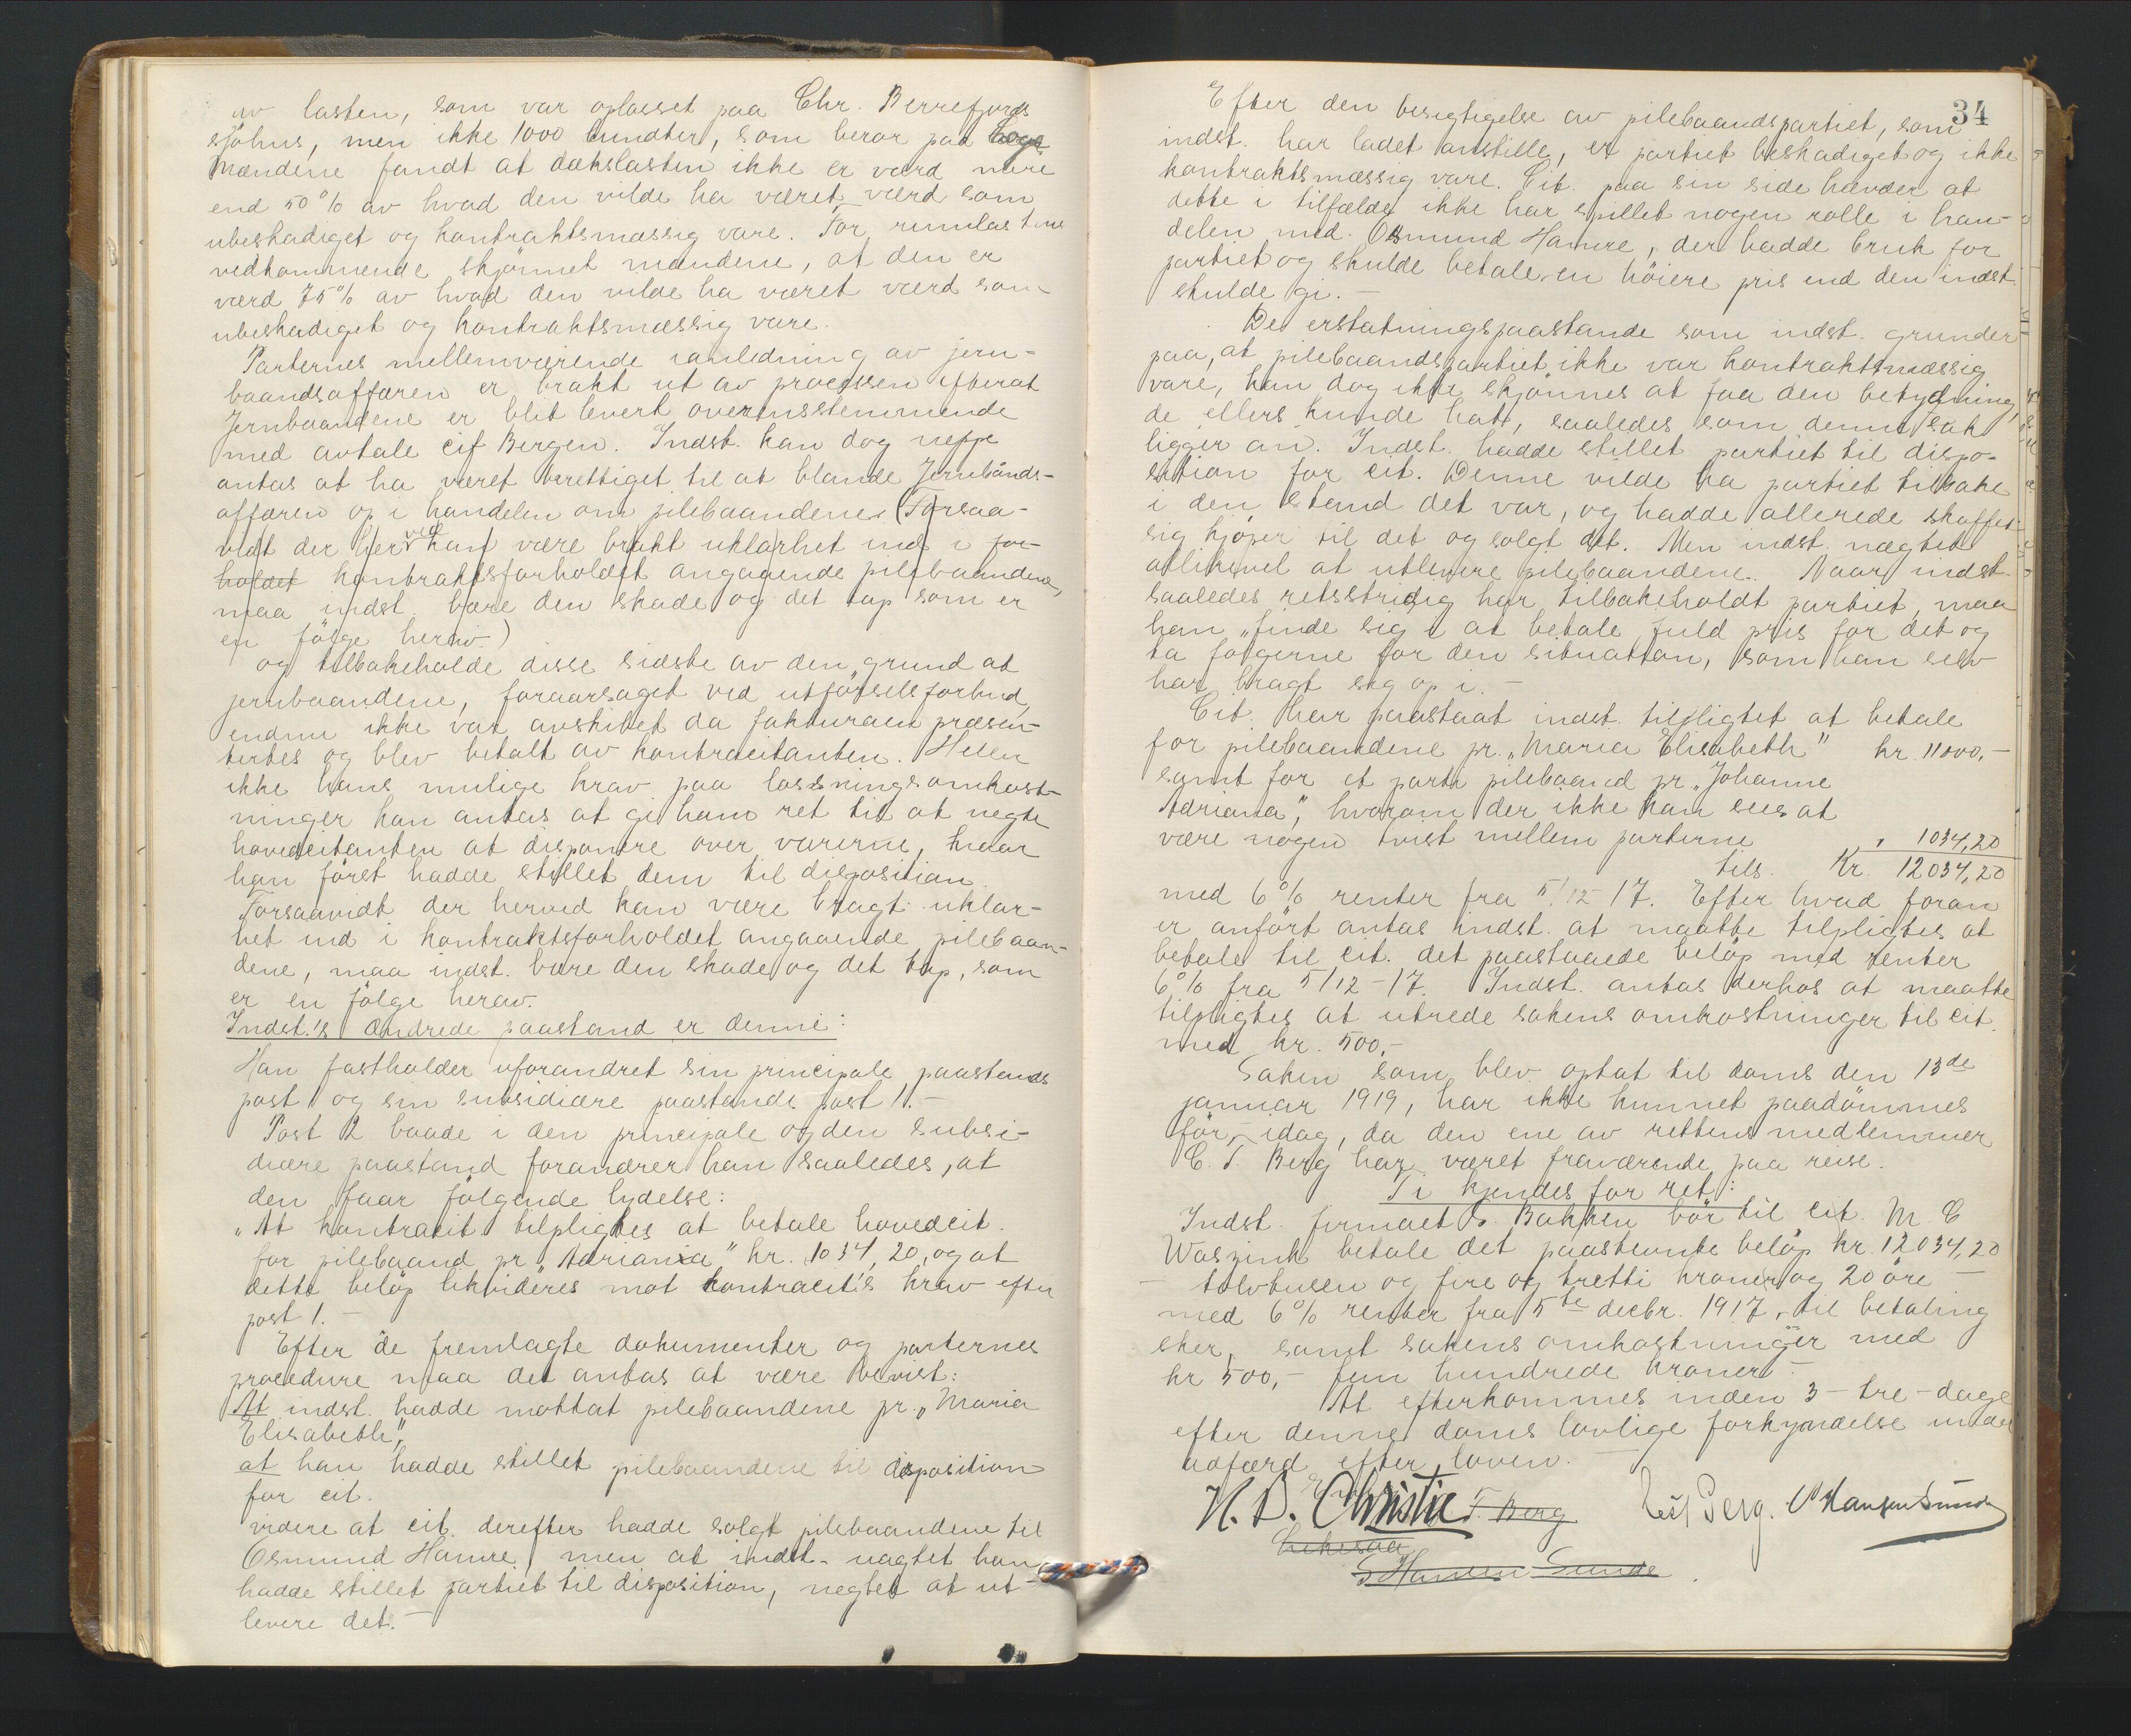 av lasten, som var oplosset paa Chr. Berrefjords
sjöhus, men ikke 1000 bundter, som beror paa
Mændene fandt at dækslasten ikke er værd mere
end 50 % av hvad den vilde ha været værd som
ubeskadiget og kontraktsmæssig vare. For rumlastens
vedkommende skjönnet mændene, at den er
værd 75 % av hvad den vilde ha været værd som
ubeskadiget og kontraktsmæssig vare.
Parternes mellemværende i anledning av jern-
baandsaffæren er brakt ut av processen efterat
Jernbaandene er blit levert overensstemmende
med avtale cif Bergen. Indst. kan dog neppe
antas at ha været berettiget til at blande Jernbånds-
affæren op i handelen om pilebaandene. (Forsaa-
vidt der herved kan være brakt uklarhet ind i for-
holdet kontraktsforholdet angaaende pilebaandene,
maa indst. bære den skade og det tap som er
en fölge herav.)
og tilbakeholde disse sidste av den grund at
jernbaandene, foraarsaget ved utförselsforbud,
endnu ikke var avskibet da fakturaen præsen-
tertes og blev betalt av kontracitanten. Heller
ikke hans mulige krav paa lossningsomkost-
ninger kan antas at gi ham ret til at negte
hovedcitanten at disponere over varerne, naar
han först hadde stillet dem til disposition.
Forsaavidt der herved kan være bragt uklar-
het ind i kontraktsforholdet angaaende pilebaan-
dene, maa indst. bære den skade og det tap, som
er en fölge herav.
Indst.'s ændrede paastand er denne:
Han fastholder uforandret sin principale paastands
post 1 og sin subsidiære paastands post 1.-
Post 2 baade i den principale og den subsi-
diære paastand forandrer han saaledes, at
den faar fölgende lydelse:
"At kontracit tilpligtes at betale hovedcit.
for pilebaand pr "Adriana" kr. 1034,20, og at
dette belöp likvideres mot kontracit's krav efter
post 1. -
Efter de fremlagte dokumenter og parternes
procedure maa det antas at være bevist:
At indst. hadde mottat pilebaandene pr. "Maria
Elisabeth",
at han hadde stillet pilebaandene til disposition
for cit.
videre at cit. derefter hadde solgt pilebaandene til
Osmund Hamre, men at indst. uagtet han
hadde stillet partiet til disposition, negtet at ut-
levere det. -
34
Efter den besigtigelse av pilebaandspartiet, som
indst. har ladet anstille, er partiet beskadiget og ikke
kontraktsmæssig vare. Cit. paa sin side hævder at
dette i tilfælde ikke har spillet nogen rolle i han-
delen med Osmund Hamre, der hadde bruk for
partiet og skulde betale en höiere pris end den indst.
skulde gi. -
De erstatningspaastande som indst. grunder
paa, at pilebaandspartiet ikke var kontraktsmæssig
vare, kan dog ikke skjönnes at faa den betydning,
de ellers kunde hat, saaledes som denne sak
ligger an. Indst. hadde stillet partiet til dispo-
sition for cit. Denne vilde ha partiet tilbake
i den stand det var, og hadde allerede skaffet
sig kjöper til det og solgt det. Men indst. nægtet
allikevel at utlevere pilebaandene. Naar indst.
saaledes retsstridig har tilbakeholdt partiet, maa
han finde sig i at betale fuld pris for det og
ta fölgerne for den situation, som han selv
har bragt sig op i. -
Cit. har paastaat indst. tilpligtet at betale
for pilebaandene pr. "Maria Elisabeth" kr. 11000,-
samt for et parti pilebaand pr. "Johanne
Adriana", hvorom der ikke kan sees at
være nogen tvist mellem parterne " 1034,20
tils. Kr. 12034,20
med 6 % renter fra 5/12-17. Efter hvad foran
er anfört antas indst. at maatte tilpligtes at
betale til cit. det paastaaede belöp med renter
6 % fra 5/12-17. Indst. antas derhos at maatte
tilpligtes at utrede sakens omkostninger til cit.
med kr. 500,-
Saken som blev optat til doms den 13de
januar 1919, har ikke kunnet paadömmes
för - idag, da den ene av rettens medlemmer
C. T. Berg har været fraværende paa reise.
Ti kjendes for ret:
Indst. firmaet Bakken bör til cit. M. C
Waszink betale det paastevnte belöp kr. 12034,20
- tolvtusen og fire og tretti kroner og 20 öre -
med 6 % renter fra 5te decbr. 1917, til betaling
sker, samt sakens omkostninger med
kr 500,- fem hundrede kroner. -
At efterkommes inden 3 - tre - dage
efter denne doms lovlige forkyndelse under
adfærd efter loven. -
H. D. Christie T. Berg Berg. Hansen Sunde
S Hansen Sunde